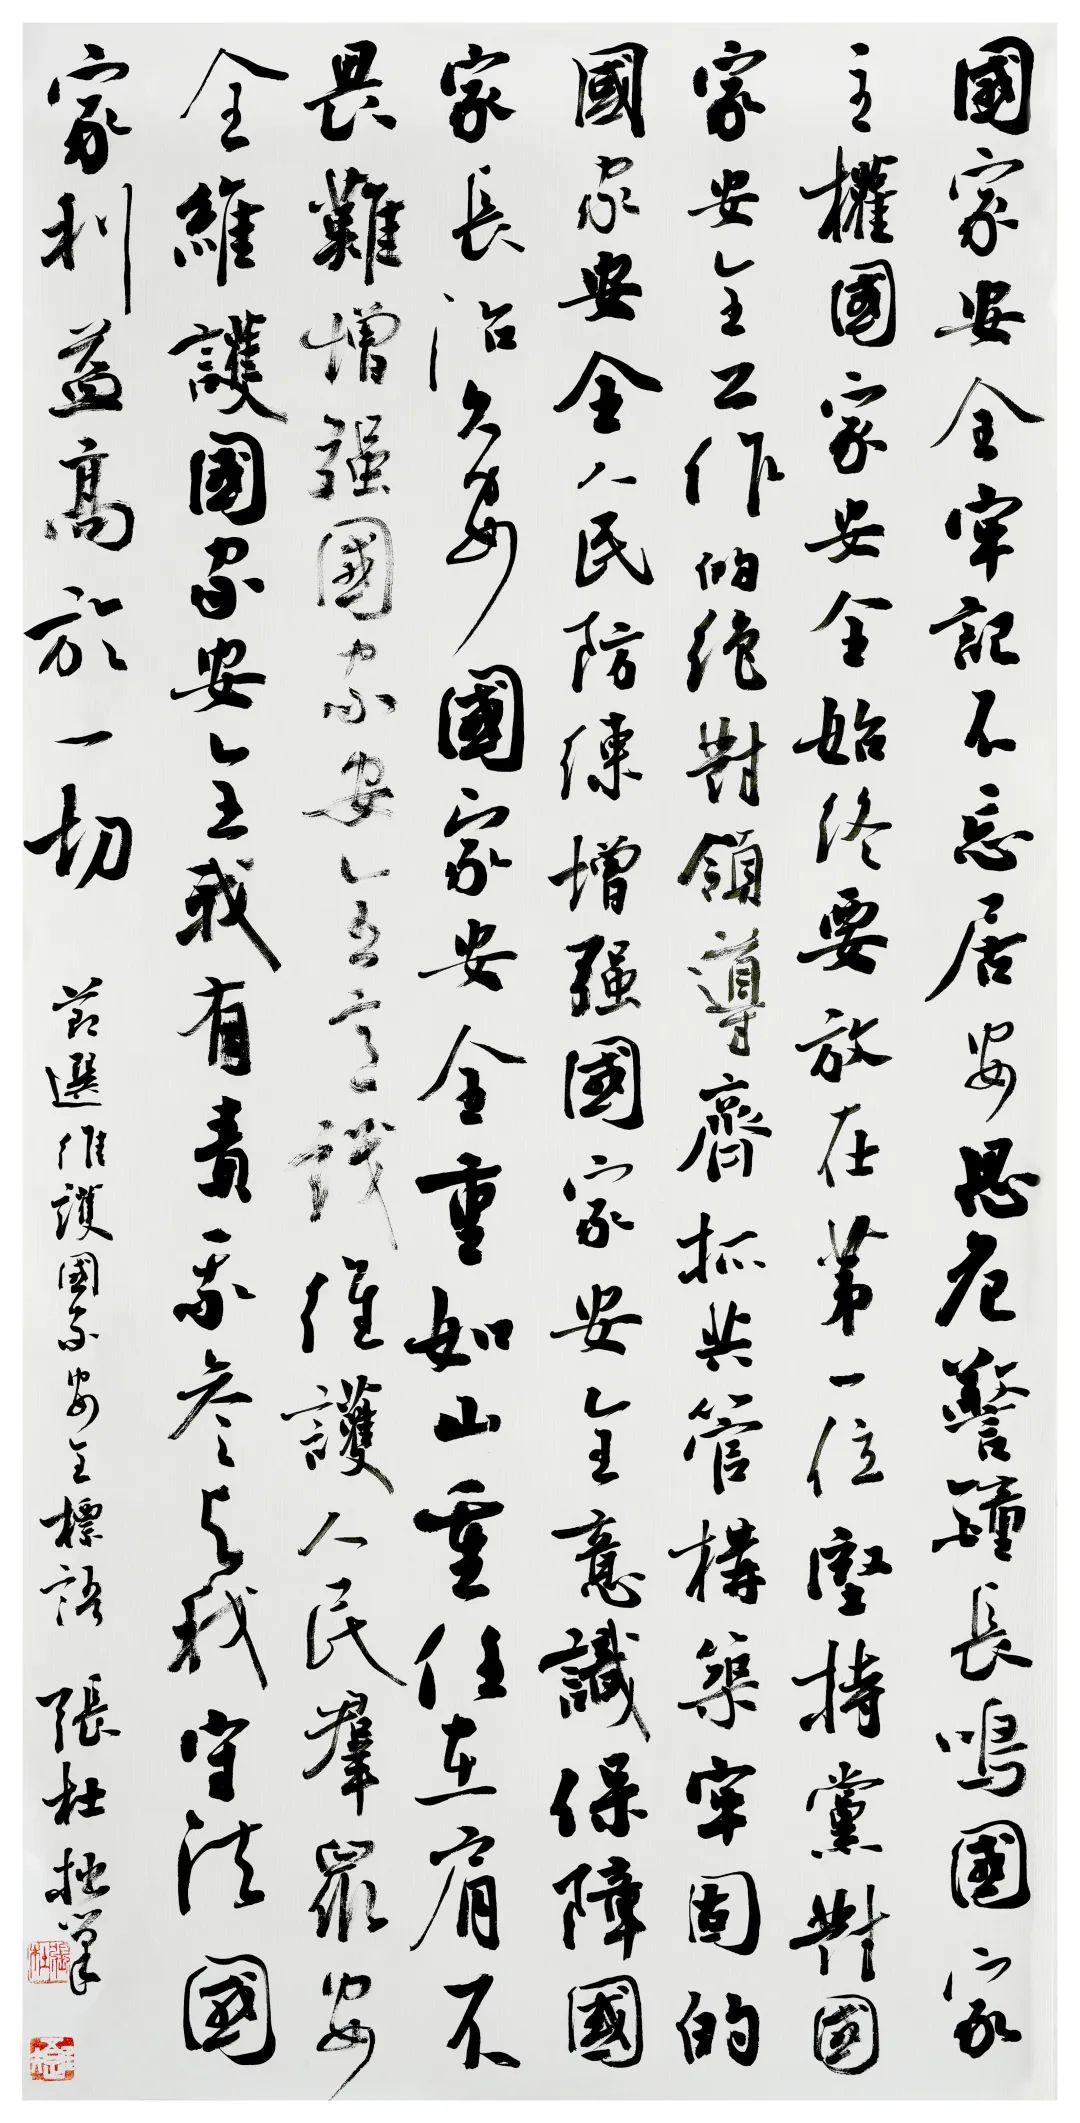 國家安全牢記不忘居安思危警鐘長鳴國家
主權國家安全始終要放在第一位堅持黨對國
家安全工作的絕對領導齊抓共管構築牢固的
國家安全人民防線增強國家安全意識保障國
家長治久安國家安全重如山重任在肩不
畏難增强國家安全意識維護人民羣眾安
全維護國家安全我有責我參與我守法國
家利益高於一切
節選維護國家安全標語 張杜拙筆